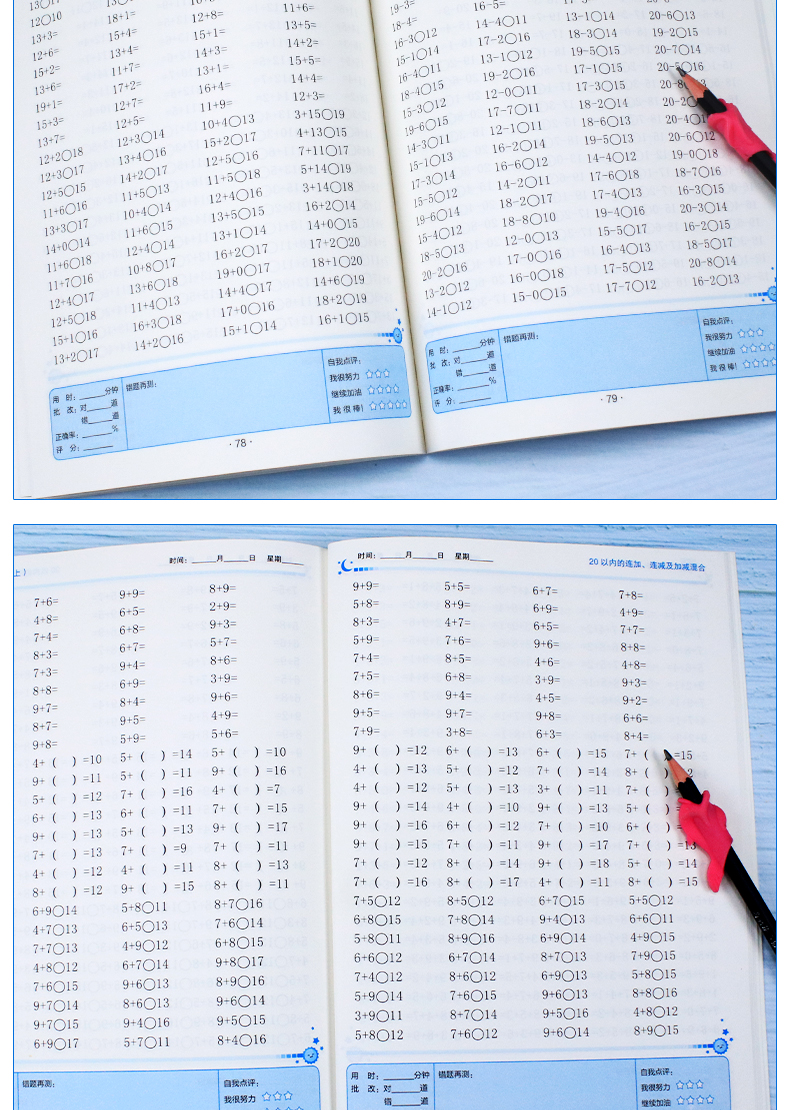 12○10
13+3= 18+1=
12+6= 15+4= 12+8= 11+6=
15+2= 13+4= 15+1= 13+5=
13+6= 11+7= 14+3= 14+2=
19+1= 17+2= 13+1= 15+5=
15+3= 12+7= 16+4= 14+4=
13+7= 12+5= 11+9= 12+3=
12+2○18 12+3○14 10+4○13 3+15○19
12+3○17 13+4○16 15+2○17 4+13○15
12+5○15 14+2○17 12+5○16 7+11○17
11+6○16 11+5○13 11+5○18 5+14○19
13+3○17 10+4○14 12+4○16 3+14○18
14+0○14 11+6○15 13+5○15 16+2○14
11+6○18 12+4○14 13+1○14 14+0○15
11+7○16 10+8○17 16+2○17 17+2○20
12+4○17 13+6○18 19+0○17 18+1○20
12+5○18 11+4○13 14+4○17 14+6○19
15+1○16 16+3○18 17+0○16 18+2○19
13+2○17 14+2○16 15+1○14 16+1○15
用 时：______分钟
批 改：对______道
错______道
正确率：______%
评 分：______
错题再测：
自我点评：
我很努力 ☆☆☆
继续加油 ☆☆☆☆
我 很 棒！ ☆☆☆☆☆
· 78 ·
19-3= 16-5=
18-4=
16-3○12 14-4○11 13-1○14 20-6○13
15-1○14 17-2○16 18-3○14 19-2○15
16-4○11 13-1○12 19-5○15 20-7○14
18-4○15 19-2○16 17-1○15 20-5○16
15-3○12 12-0○11 17-3○15
19-6○15 17-7○11 18-2○14
14-3○11 12-1○11 18-6○13
15-1○13 16-2○14 19-5○13 20-6○12
17-3○14 16-6○12 14-4○12 19-0○18
15-5○12 14-2○11 17-6○18 18-7○16
19-6○14 18-2○17 17-4○13 16-3○15
15-4○12 18-8○10 19-4○16 20-3○14
18-5○13 12-0○13 15-5○17 16-2○15
20-2○16 17-0○16 16-4○13 18-5○17
13-2○12 16-0○18 17-5○12 20-8○14
14-1○12 15-0○15 17-7○12 16-2○13
用 时：______分钟
批 改：对______道
错______道
正确率：______%
评 分：______
错题再测：
自我点评：
我很努力 ☆☆☆
继续加油 ☆☆☆☆
我 很 棒！ ☆☆☆☆
· 79 ·
上）
时间：______月______日 星期______
7+6= 9+9= 8+9=
4+8= 6+5= 2+9=
7+4= 6+8= 9+3=
8+3= 6+7= 5+7=
7+3= 9+4= 8+6=
8+8= 6+9= 3+9=
9+7= 8+4= 9+6=
8+7= 9+5= 4+9=
9+8= 5+9= 5+6=
4+（ ）=10 5+（ ）=14 5+（ ）=10
9+（ ）=11 5+（ ）=11 9+（ ）=16
5+（ ）=12 7+（ ）=16 4+（ ）=7
6+（ ）=13 6+（ ）=11 7+（ ）=15
9+（ ）=13 5+（ ）=13 9+（ ）=17
7+（ ）=13 7+（ ）=9 7+（ ）=11
4+（ ）=12 4+（ ）=11 8+（ ）=13
8+（ ）=12 9+（ ）=15 8+（ ）=11
6+9○14 5+8○11 8+7○16
4+7○13 6+5○13 7+6○14
7+7○13 4+9○12 6+8○15
4+8○12 6+7○14 9+8○17
7+6○15 9+6○13 8+9○16
9+7○14 8+6○13 9+6○14
9+7○15 9+4○16 9+5○15
6+9○17 5+7○11 8+4○16
错题再测：
自我点评：
我很努力 ☆☆☆
时间：______月______日 星期______
20 以内的连加、连减及加减混合
9+9= 5+5= 6+7= 7+8=
5+8= 8+9= 6+9= 4+9=
8+3= 4+7= 6+5= 7+7=
5+9= 7+6= 9+6= 8+8=
7+4= 8+5= 4+6= 4+8=
7+5= 6+8= 3+9= 9+3=
8+6= 9+4= 4+5= 9+2=
9+5= 9+7= 9+8= 6+6=
7+9= 3+8= 6+3= 8+4=
9+（ ）=12 6+（ ）=13 6+（ ）=15 7+（ ）=15
4+（ ）=13 5+（ ）=12 7+（ ）=14 8+（
4+（ ）=12 5+（ ）=13 3+（ ）=11 7+（
9+（ ）=14 4+（ ）=10 9+（ ）=13 5+（
9+（ ）=16 6+（ ）=12 7+（ ）=10 6+（ ）
9+（ ）=15 7+（ ）=11 9+（ ）=17 7+（ ）=13
7+（ ）=12 8+（ ）=14 9+（ ）=18 5+（ ）=14
7+（ ）=16 8+（ ）=17 4+（ ）=11 8+（ ）=15
7+5○12 8+5○12 6+7○15 5+5○12
6+8○15 7+8○14 9+4○13 6+6○11
5+8○11 8+9○16 6+9○14 4+9○15
6+6○12 6+7○14 8+7○13 7+9○15
7+4○12 8+6○12 6+9○13 5+8○15
5+9○14 7+6○15 9+6○13 8+8○16
3+9○11 8+7○14 9+5○16 4+8○12
5+8○12 7+6○12 9+6○14 8+9○15
用 时：______分钟
批 改：对______道
错______道
错题再测：
自我点评：
我很努力 ☆☆☆
继续加油 ☆☆☆☆